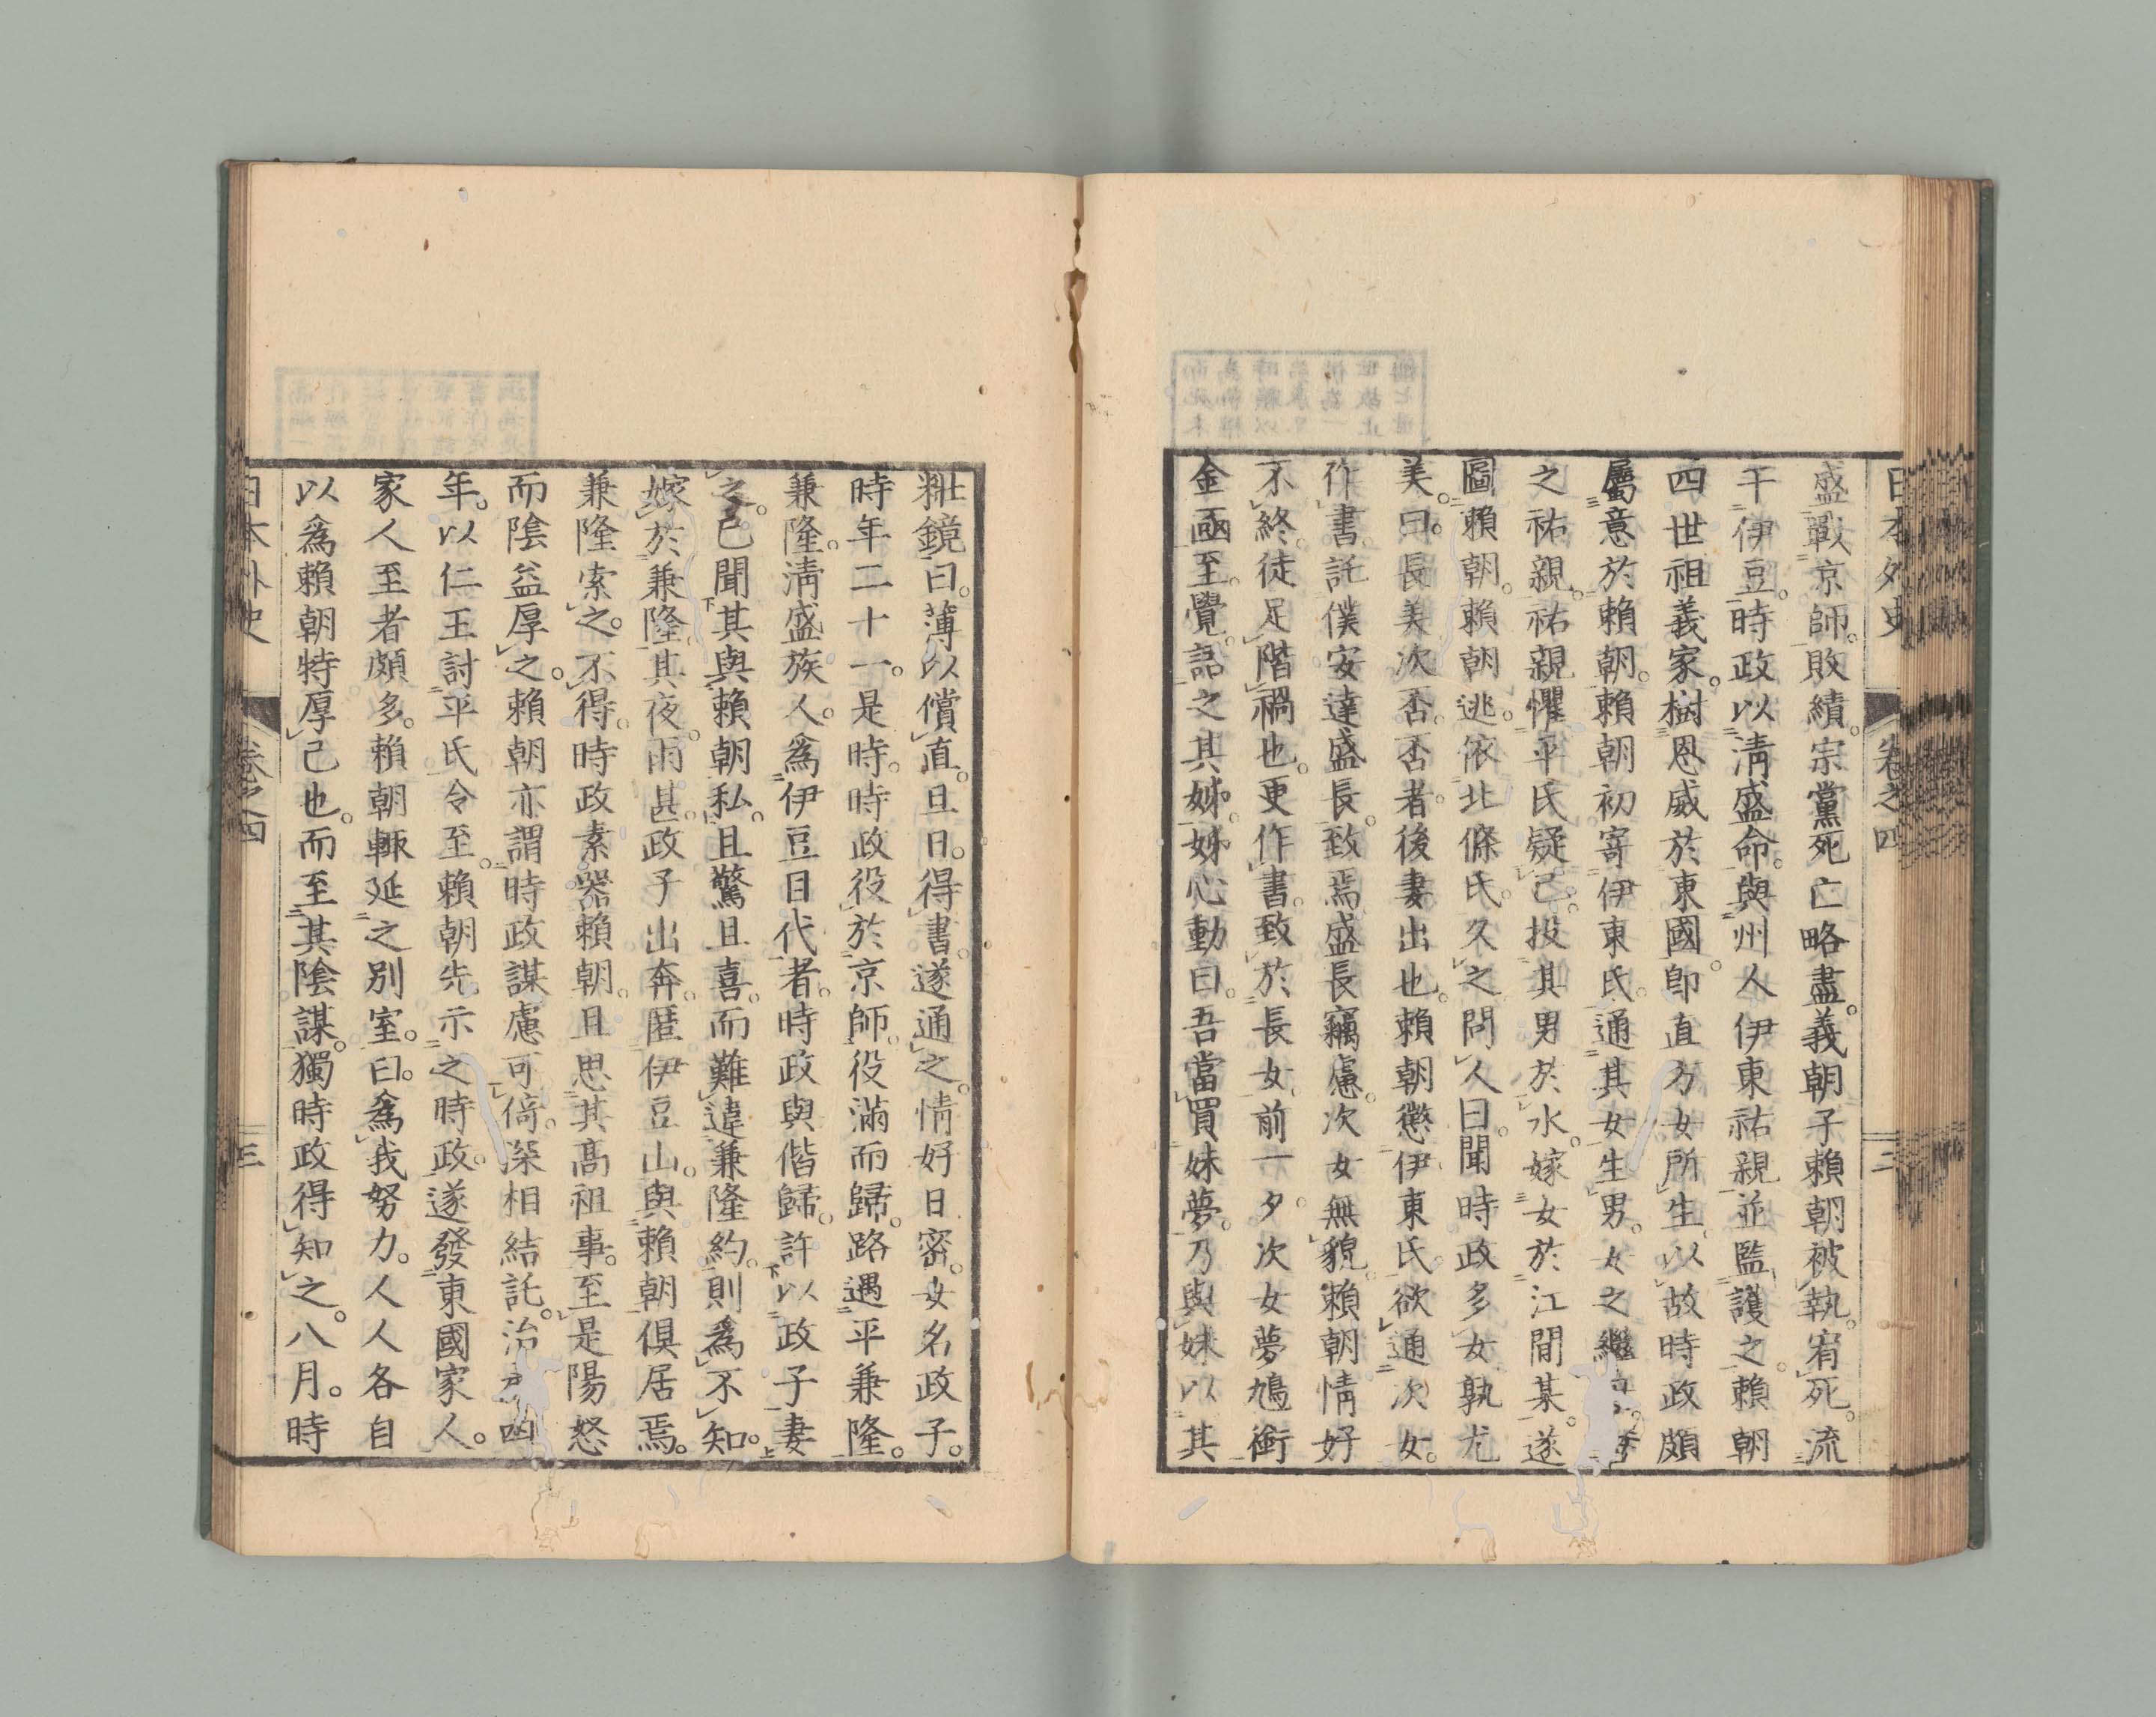 日本外史 卷之四 二
盛戰京師。敗績。宗黨死亡略盡。義朝子賴朝被執。宥死。流
干伊豆。時政以淸盛命。與州人伊東祐親並監護之。賴朝
四世祖義家。樹恩威於東國。卽直方女所生。以故時政頗
屬意於賴朝。賴朝初寄伊東氏。通其女生男。女之繼
之祐親。祐親懼平氏疑己。投其男於水。嫁女於江間某。遂
圖賴朝。賴朝逃。依北條氏。久之問人曰。聞時政多女孰尤
美。曰。長美次否。否者。後妻出也。賴朝懲伊東氏。欲通次女。
作書託僕安達盛長。致焉盛長竊慮。次女無貌。賴朝情好
不終。徒足階禍也。更作書。致於長女。前一夕。次女夢鳩銜
金凾至。覺。語之其姊。姊心動曰。吾當買妹夢。乃與妹以其
粧鏡曰。薄以償直。旦日。得書。遂通之。情好日密。女名政子。
時年二十一。是時。時政役於京師。役滿而歸。路遇平兼隆。
兼隆。淸盛族人。爲伊豆目代者。時政與偕歸。許以政子妻
之。已聞其與賴朝私。且驚且喜。而難違兼隆約。則爲不知。
嫁於兼隆。其夜。雨甚。政子出奔。匿伊豆山。與賴朝俱居焉。
兼隆索之。不得。時政素器賴朝。且思其高祖事。至是陽怒
而陰益厚之。賴朝亦謂時政謀慮可倚。深相結託。治 四
年。以仁王討平氏令至。賴朝先示之時政。遂發東國家人。
家人至者頗多。賴朝輙延之別室。曰。爲我努力。人人各自
以爲賴朝特厚己也。而至其陰謀。獨時政得知之。八月。時
日本外史 卷之四 三